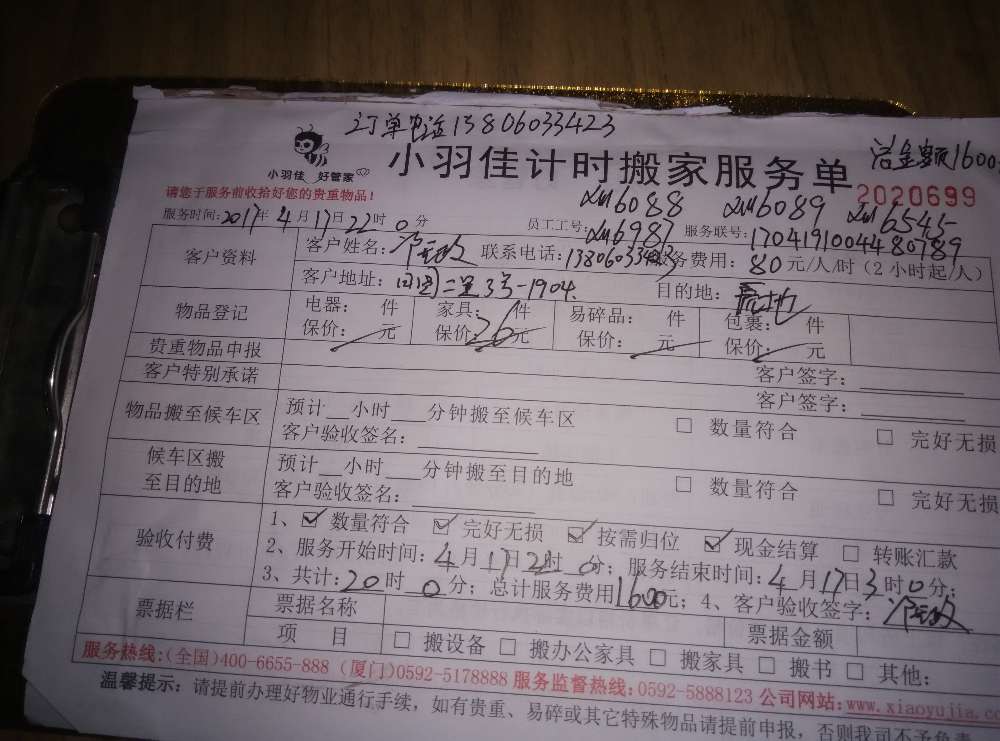 订单电话13806033423
小羽佳 好管家
小羽佳计时搬家服务单
洽金额1600
2020699
请您于服务前收拾好您的贵重物品！
服务时间：2017年4月17日22时0分
员工工号：
6088 6089 6545
6987
服务联号：1704191004480789
客户资料
客户姓名：
联系电话：13806033423
服务费用：80元/人/时（2小时起/人）
客户地址：二里3号-1904
目的地：
物品登记
电器： 件 家具： 件 易碎品： 件 包裹： 件
保价： 元 保价：26元 保价： 元 保价： 元
贵重物品申报
客户签字：
客户特别承诺
客户签字：
物品搬至候车区
预计__小时___分钟搬至候车区 □ 数量符合 □ 完好无损
客户验收签名：
候车区搬
至目的地
预计__小时___分钟搬至目的地 □ 数量符合 □ 完好无损
客户验收签名：
验收付费
1、☑数量符合 ☑完好无损 ☑按需归位 ☑现金结算 □ 转账汇款
2、服务开始时间：4月17日22时0分；服务结束时间：4月17日3时0分；
3、共计：20时0分；总计服务费用1600元；4、客户验收签字：
票据栏
票据名称 票据金额
项 目 □ 搬设备 □ 搬办公家具 □ 搬家具 □ 搬书 □ 其他：
服务热线：（全国）400-6655-888（厦门）0592-5178888 服务监督热线：0592-5888123 公司网站：www.xiaoyujia.co
温馨提示：请提前办理好物业通行手续，如有贵重、易碎或其它特殊物品请提前申报，否则我司不予负责